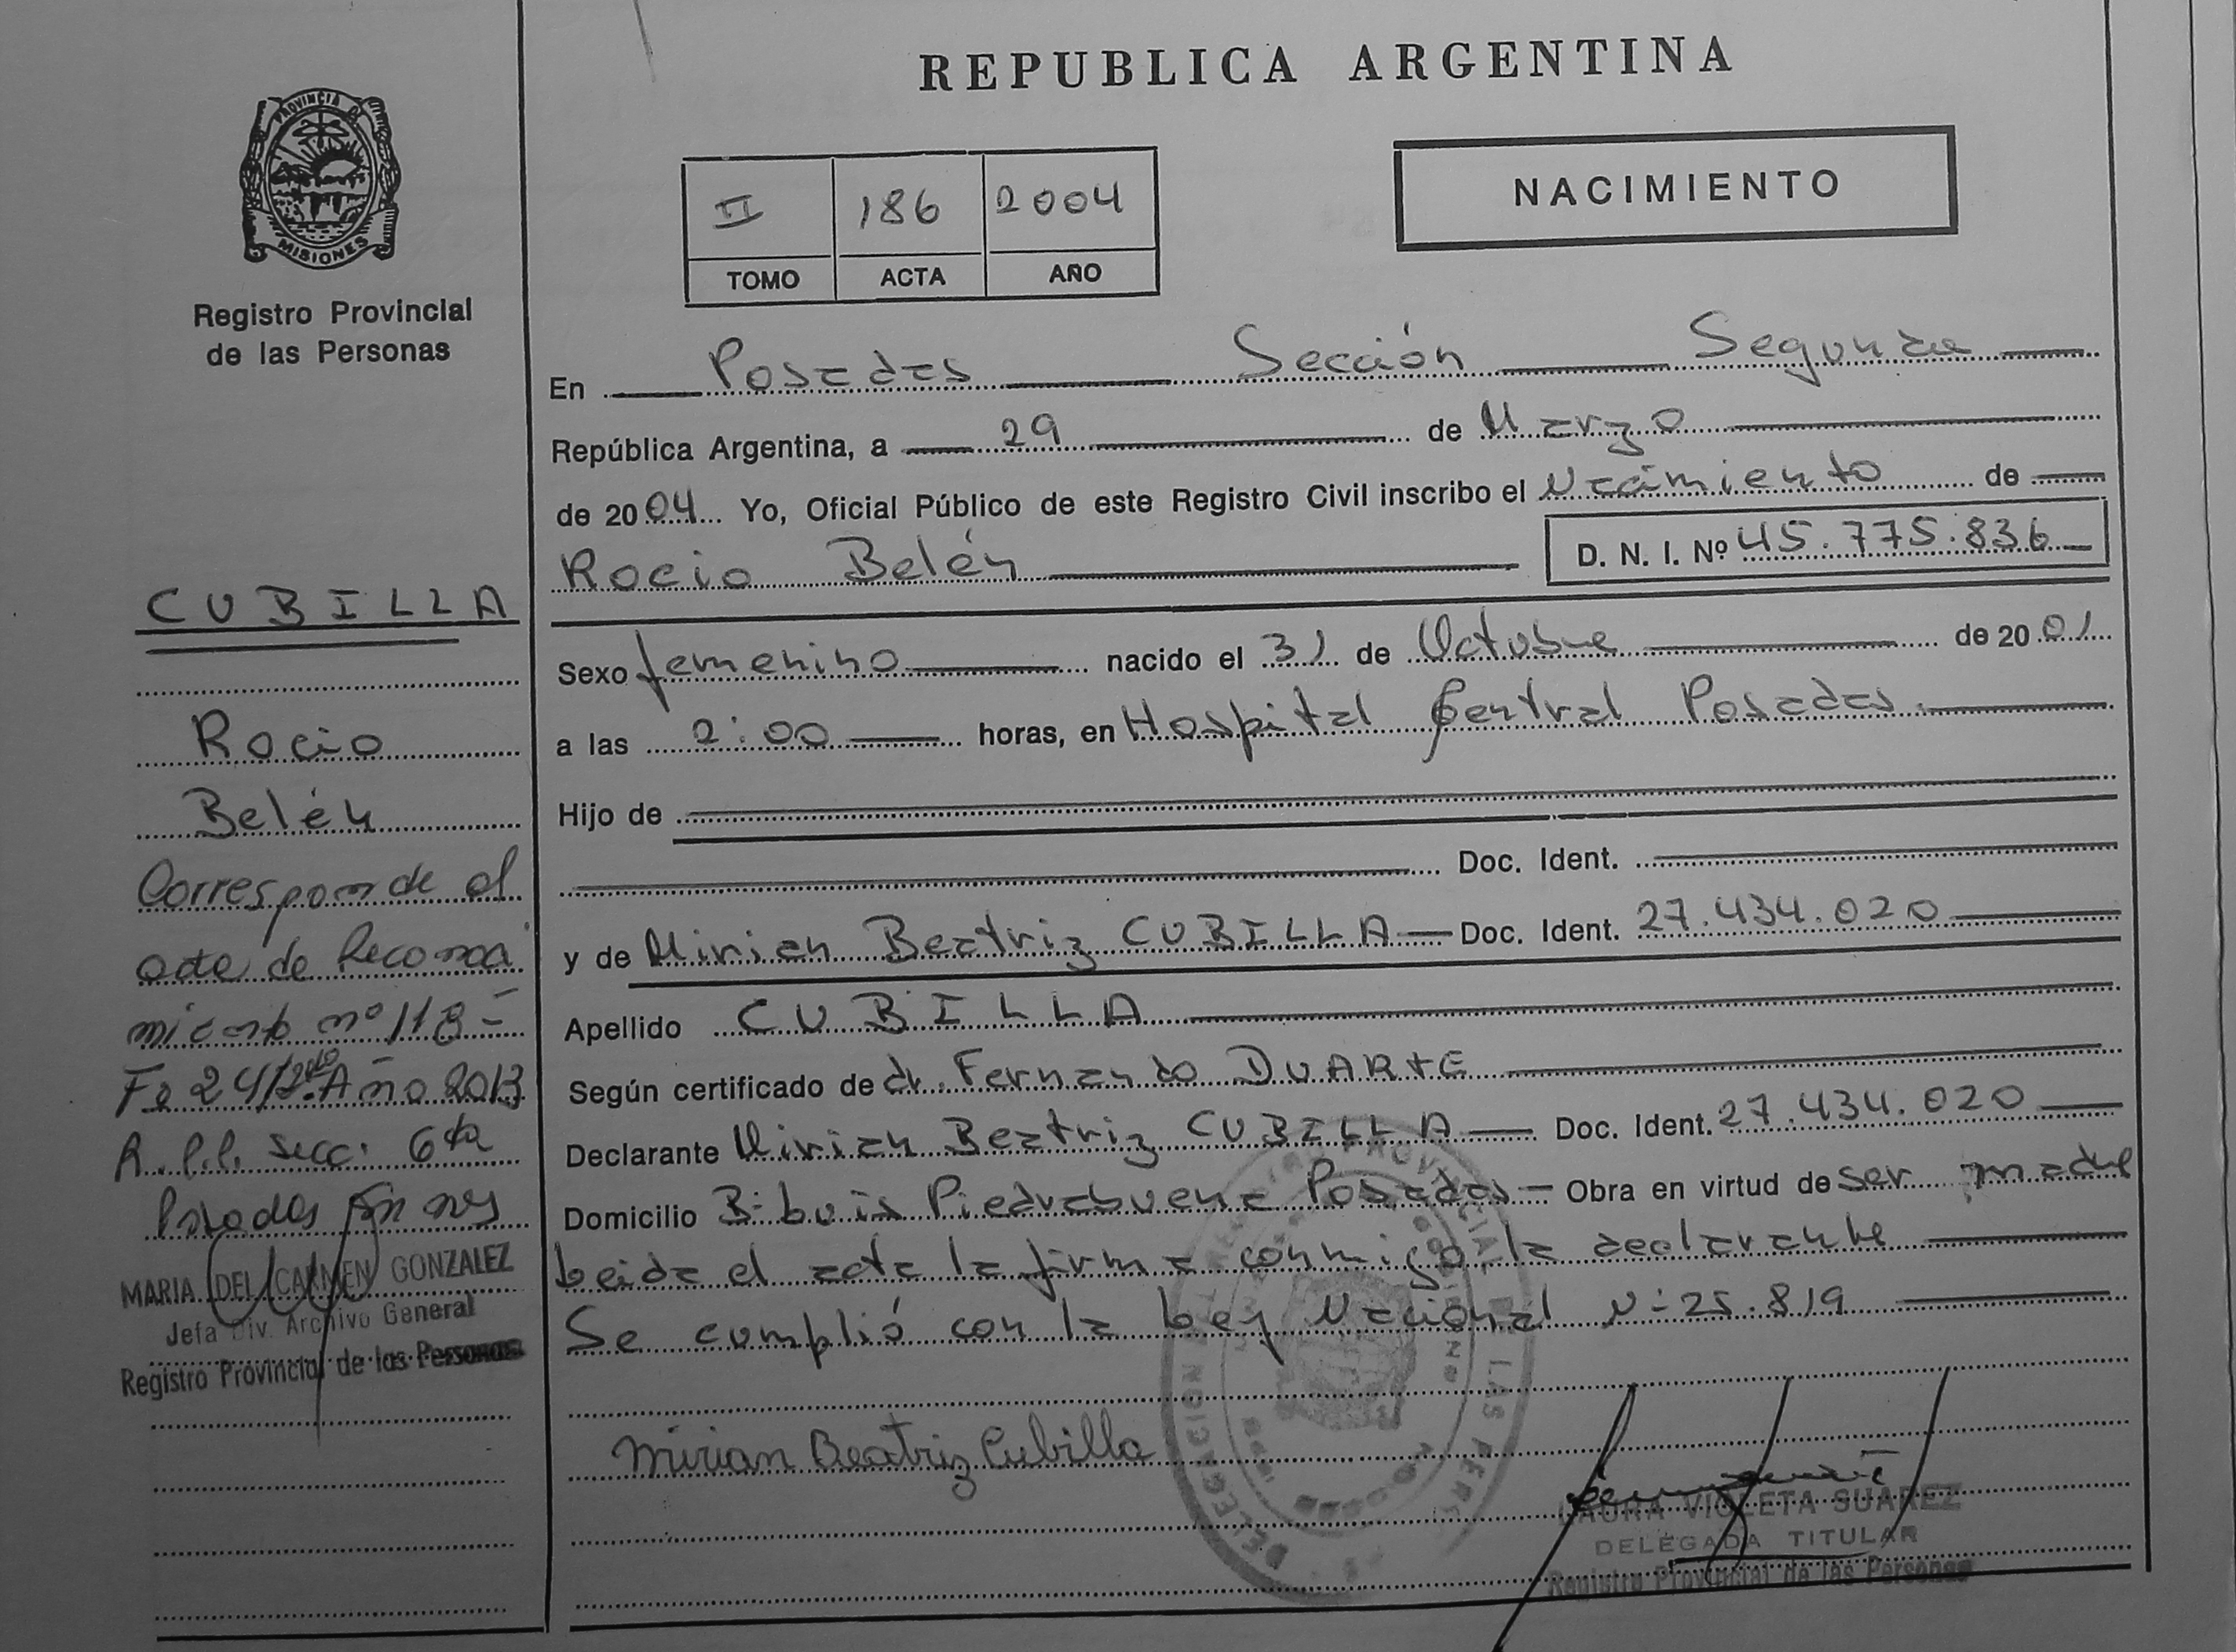 REPUBLICA ARGENTINA
PROVINCIA DE
MISIONES
Registro Provincial
de las Personas
II 186 2004
TOMO ACTA AÑO
NACIMIENTO
En Posadas Sección Segunda
República Argentina, a 29 de Marzo
de 2004 Yo, Oficial Público de este Registro Civil inscribo el Nacimiento de
Rocio Belén D. N. I. Nº 45.775.836
Sexo femenino nacido el 31 de Octubre de 2001
a las 2:00 horas, en Hospital Central Posadas.
Hijo de
Doc. Ident.
y de Mirian Beatriz CUBILLA Doc. Ident. 27.434.020
Apellido CUBILLA
Según certificado de dr. Fernando DUARTE
Declarante Mirian Beatriz CUBILLA Doc. Ident. 27.434.020
Domicilio B: Luis Piedrabuena Posadas Obra en virtud de ser madre
Leida el acta la firma conmigo la declarante
Se cumplió con la Ley Nacional Nº 25.819
Mirian Beatriz Cubilla
LAURA VIOLETA SUAREZ
DELEGADA TITULAR
Registro Provincial de las Personas
CUBILLA
Rocio
Belén
Corresponde al
acta de Reconoci
miento nº 118
Fº 241 Año 2013
R.P.P. Secc: 6ta
Posadas
MARIA DEL CARMEN GONZALEZ
Jefa Div. Archivo General
Registro Provincial de las Personas